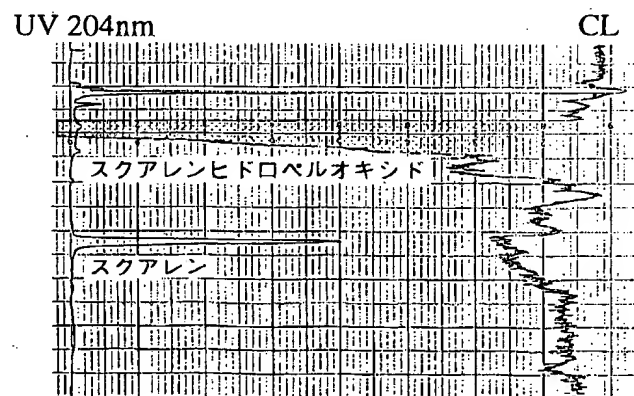 UV 204nm CL
スクアレンヒドロペルオキシド
スクアレン